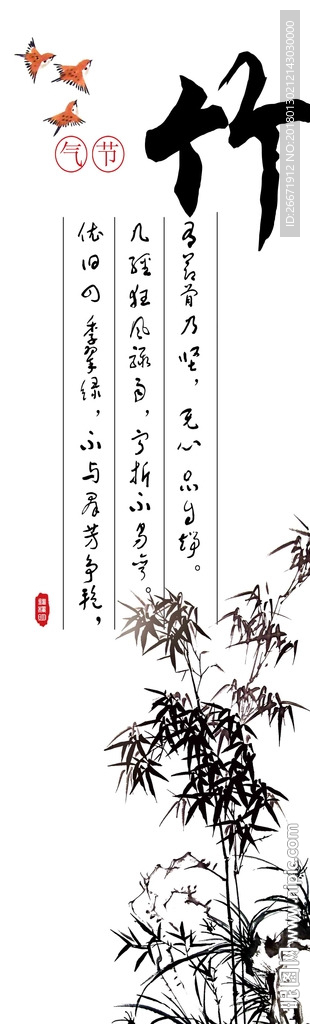 竹
气节
有节骨乃坚，无心品自端。
几经狂风骤雨，宁折不易弯。
依旧四季翠绿，不与群芳争艳，
ID:26671912 NO:20180130212143030000
昵图网 www.nipic.com